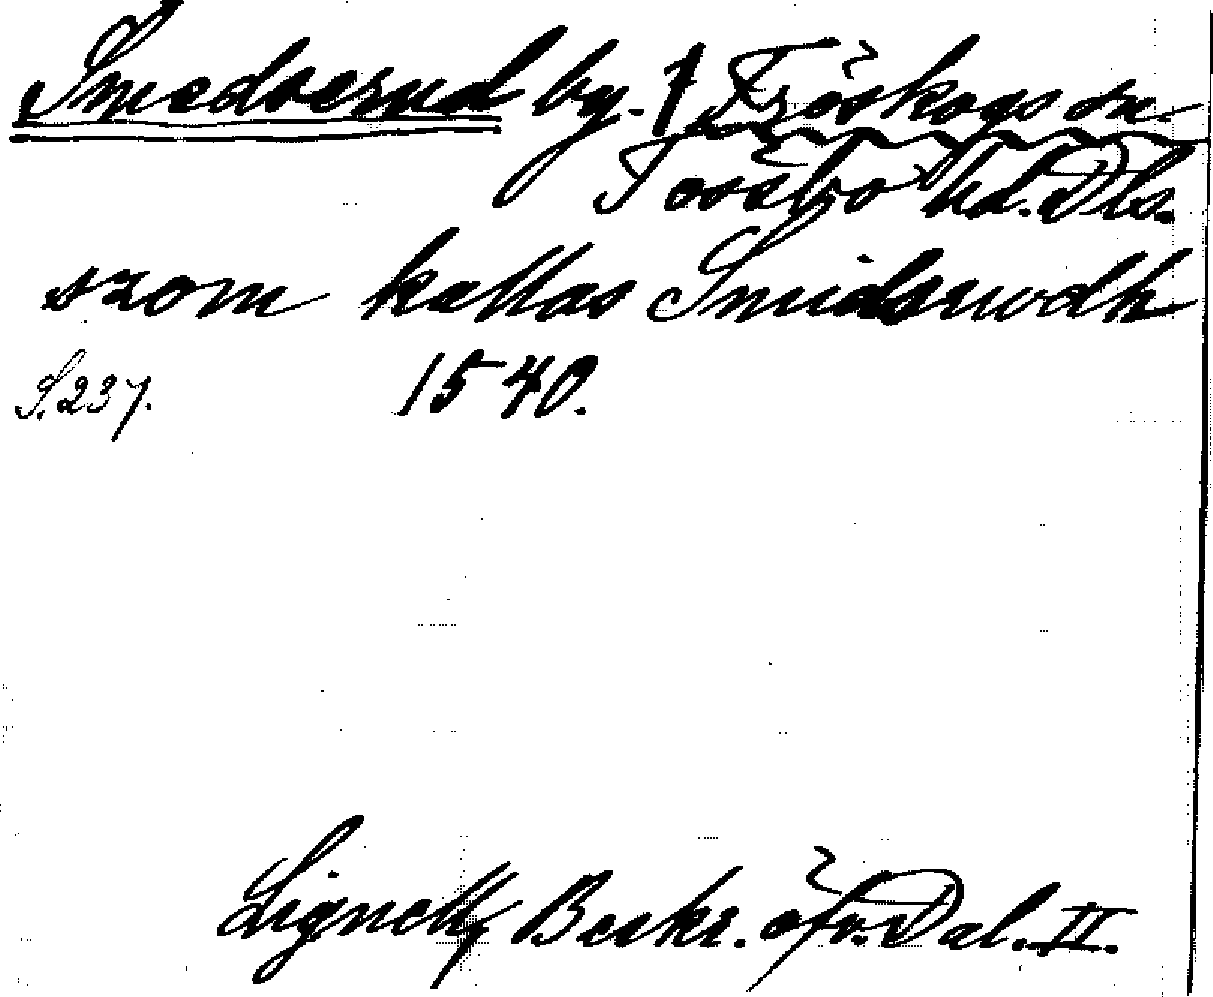 Smedserud by. Fröskogs sn
Tössbo hd. Dls.
szom kallas Smidsrudh
S. 237. 1540.
Lignell, Beskr. öfv. Dal. II.